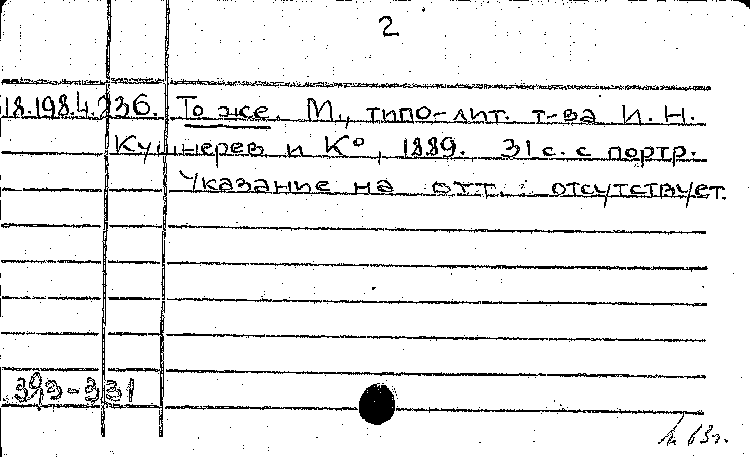 2
18.198.4.236. То же. М., типо-лит. т-ва И. Н.
Кушнерев и К°, 1889. 31 с. с портр.
Указание на отт. отсутствует.
393-331
63г.